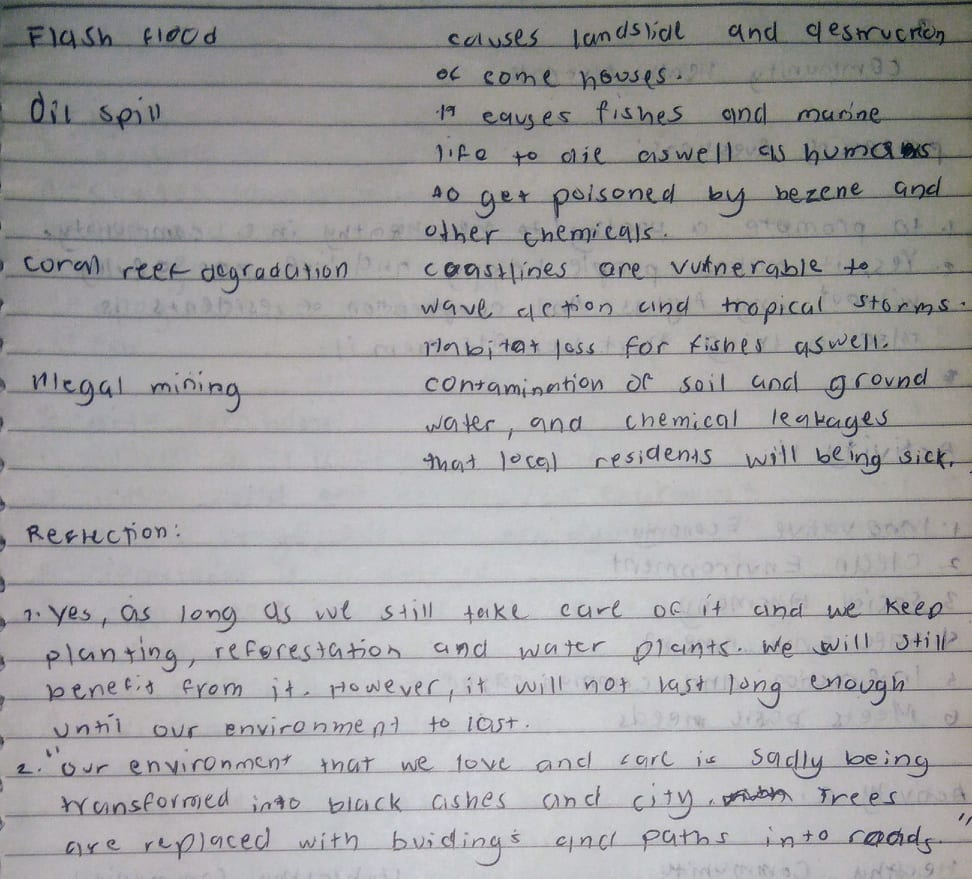 Flash flood causes landslide and destruction
of some houses.
Oil spill It causes fishes and marine
life to die aswell as humans
to get poisoned by bezene and
other chemicals.
coral reef degradation coastlines are vulnerable to
wave action and tropical storms.
Habitat loss for fishes aswell.
Illegal mining contamination of soil and ground
water, and chemical leakages
that local residents will being sick.
Reflection:
1. Yes, as long as we still take care of it and we keep
planting, reforestation and water plants. We will still
benefit from it. However, it will not last long enough
until our environment to last.
2. "Our environment that we love and care is sadly being
transformed into black ashes and city. Trees
are replaced with buidings and paths into roads."